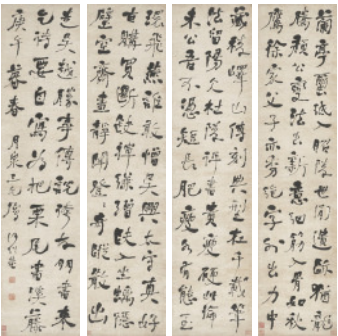 蘭亭繭紙入昭陵世間遺跡猶龍
騰顏公變法出新意細筋入骨如秋
鷹徐家父子亦秀絕字外出力中
藏稜嶧山傳刻典型在千載筆
法留陽冰杜陵評書貴瘦硬此論
未公吾不憑短長肥瘦各有態玉
環飛燕誰敢憎吳興太守真好
古購買斷缺揮縑繒龜趺入坐螭隱
壁空齋晝靜聞登登奇蹤散出
走吳越勝事傳說誇友朋書來
乞詩要自寫為把栗尾書溪藤
庚午暮春 月泉 何紹基